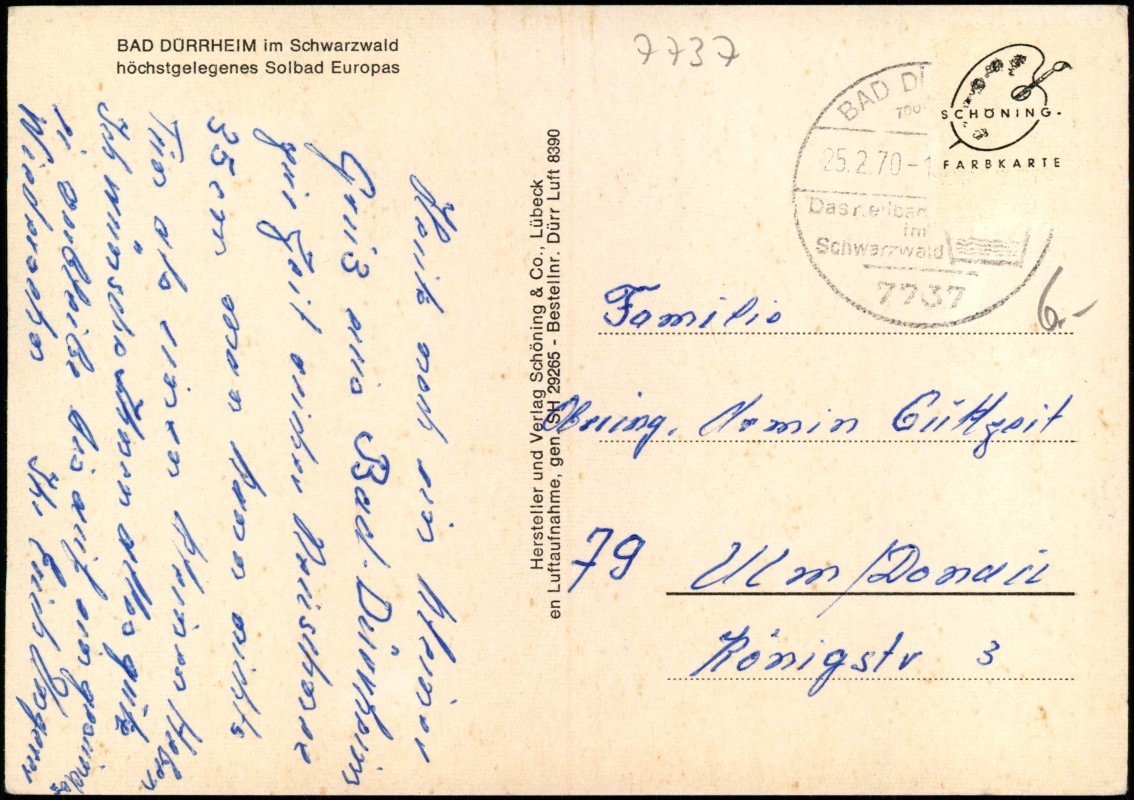 BAD DÜRRHEIM im Schwarzwald
höchstgelegenes Solbad Europas
Heute noch ein kleiner
Gruß aus Bad. Dürrheim
zur Zeit wieder Neuschnee
35 cm und kann nichts
Tun als einen
Ich wünsche Ihnen alles gute
u. verbleibe bis auf ein gesundes
Wiedersehen Ihr Erich
Hersteller und Verlag Schöning & Co., Lübeck
en Luftaufnahme, gen. SH 29265 - Bestellnr. Dürr Luft 8390
7737
BAD DÜ
25.2.70-1
Das Heilbad
im
Schwarzwald
7737
SCHÖNING-
FARBKARTE
6,-
Familie
Obering. Armin Gutzeit
79 Ulm/Donau
Königstr 3